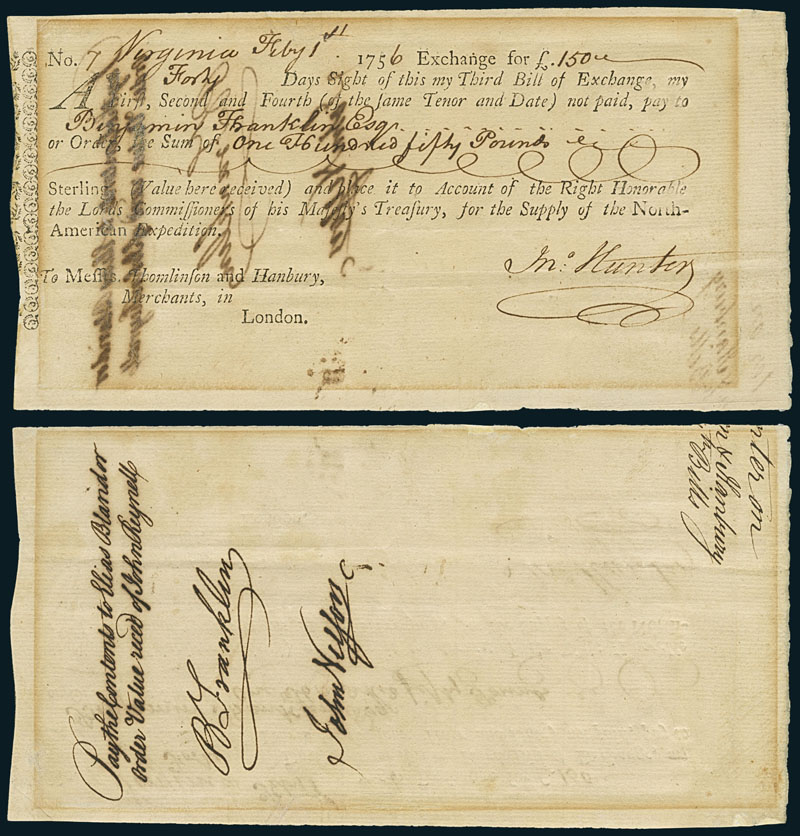 No. 7 Virginia Feby 1st 1756 Exchange for £.150
At Forty Days Sight of this my Third Bill of Exchange, my
First, Second and Fourth (of the same Tenor and Date) not paid, pay to
Benjamin Franklin Esqr.
or Order, the Sum of One Hundred fifty Pounds
Sterling, (Value here received) and place it to Account of the Right Honorable
the Lords Commissioners of his Majesty's Treasury, for the Supply of the North-
American Expedition.
Jno. Hunter
To Messrs. Thomlinson and Hanbury,
Merchants, in
London.
Pay the Contents to Elias Bland or
order Value recd of John Reynell
B Franklin
John Nelson
nter on
n & Hanbury
Bills